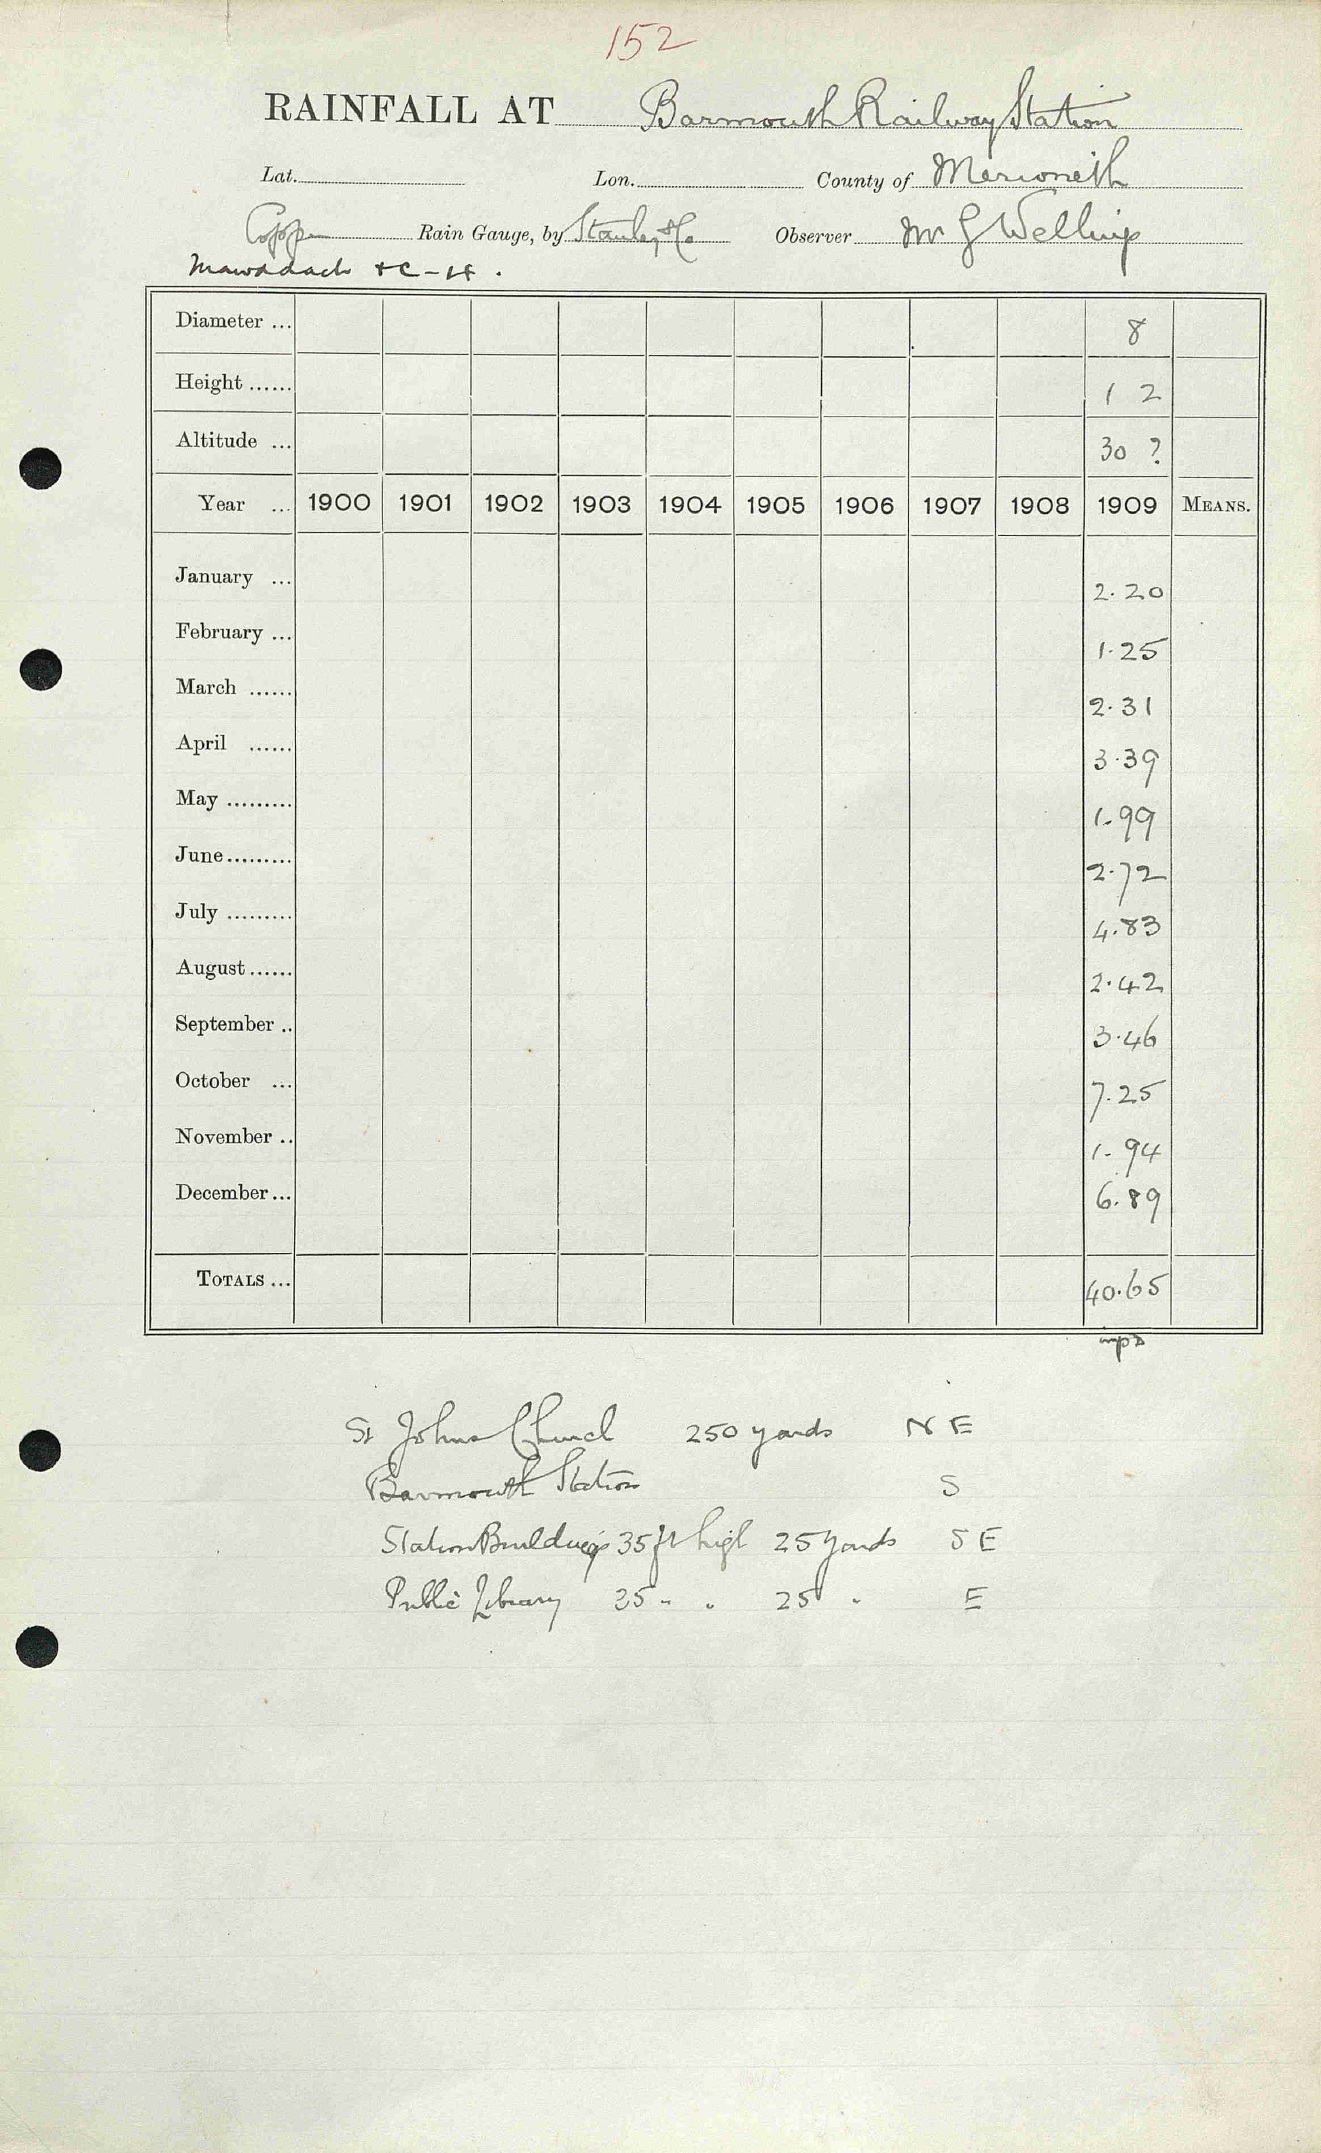 152
RAINFALL AT Barmouth Railway Station
Lat. Lon. County of Merioneth
Copper Rain Gauge, by Stanley & Co Observer Mr G Wellings
Mawddach &c - 14.
Diameter ... 8
Height ...... 1 2
Altitude ... 30 ?
Year ... 1900 1901 1902 1903 1904 1905 1906 1907 1908 1909 MEANS.
January ... 2.20
February ... 1.25
March ...... 2.31
April ...... 3.39
May ......... 1.99
June......... 2.72
July ......... 4.83
August...... 2.42
September .. 3.46
October ... 7.25
November .. 1.94
December... 6.89
TOTALS ... 40.65
St Johns Church 250 yards N E
Barmouth Station S
Station Buildings 35 ft high 25 yards S E
Public Library 25 " " 25 " E